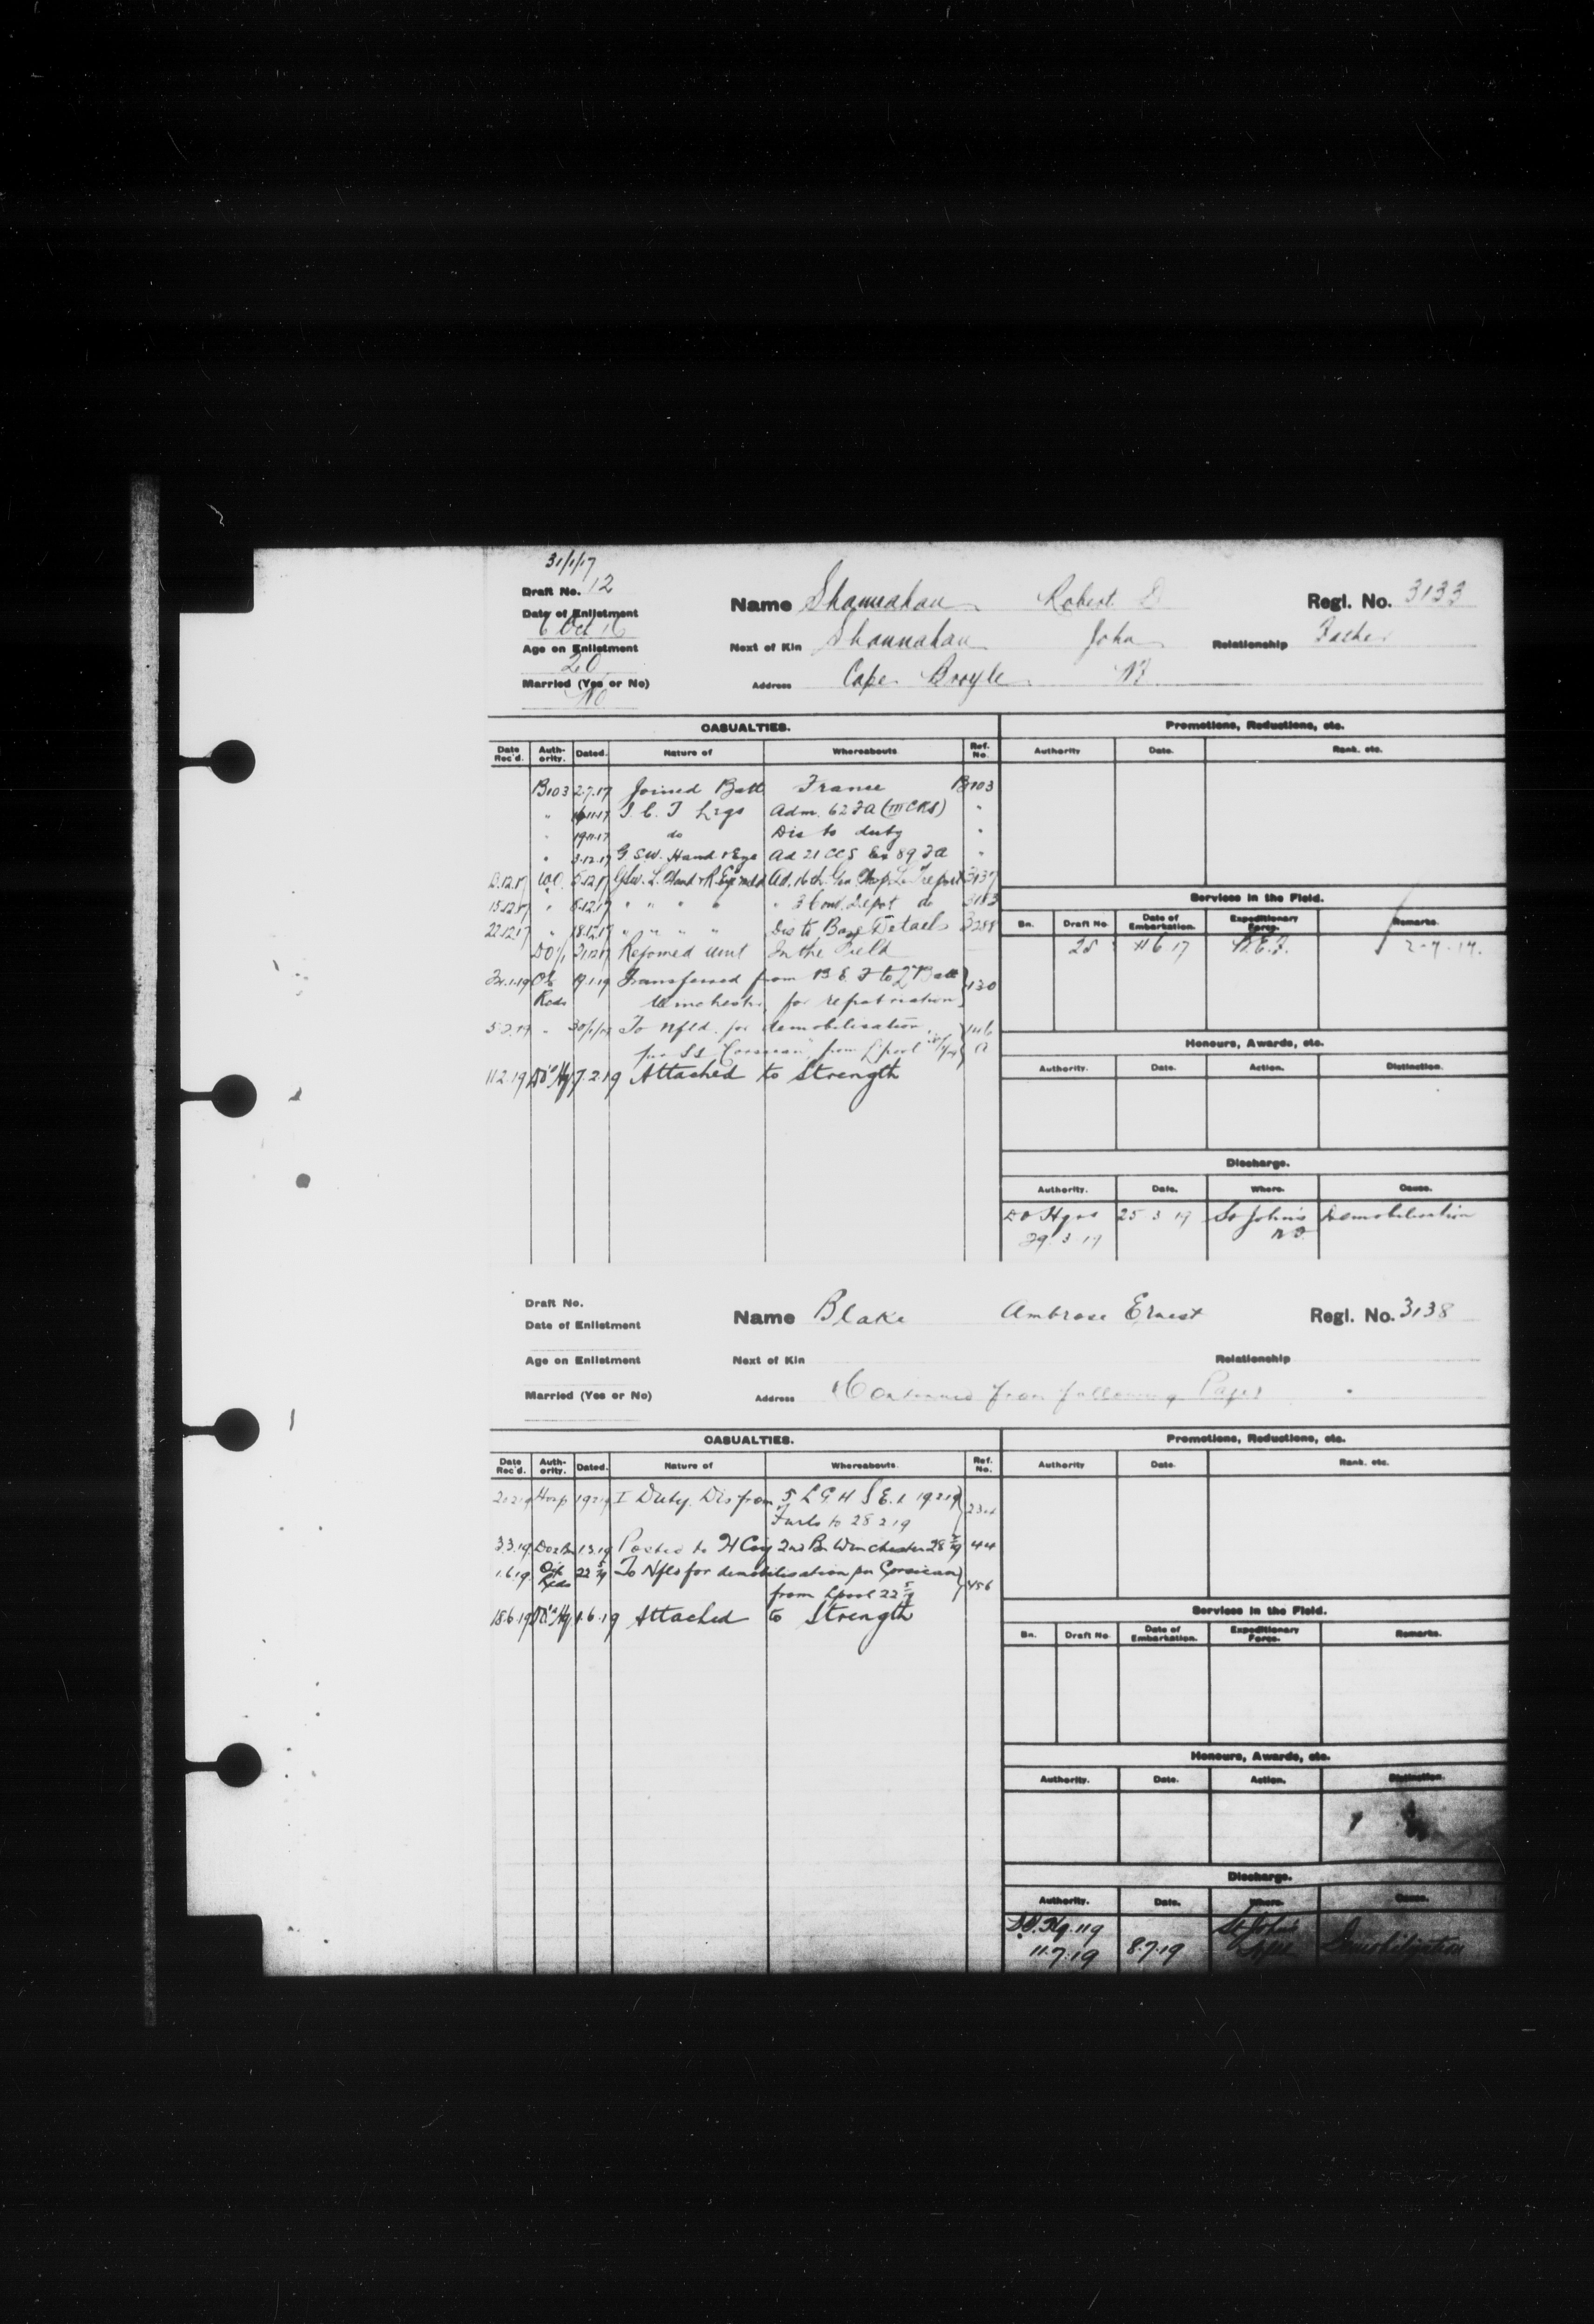 31/1/17
Draft No. 12
Date of Enlistment
6 Oct 16
Age on Enlistment
20
Married (Yes or No)
No
Name Shannahan Robert D Regl. No. 3133
Next of Kin Shannahan John Relationship Father
Address Cape Broyle Nf
CASUALTIES.
Date Rec'd. Auth-ority. Dated. Nature of Whereabouts Ref. No.
B103 2.7.17 Joined Batt France B103
" 11.17 I.C.T Legs Adm. 62 FA (III CRS) "
" 19.11.17 do Dis to duty "
" 3.12.17 G.S.W. Hand & Eye Ad 21 CCS Ex 89 FA "
12.12.17 WO 5.12.17 GSW. L. Hand & R. Eye mild Ad. 16th Gen Hosp Le Treport 3137
15.12.17 " 8.12.17 " " " " " 3 Conv. Depot do 3153
22.12.17 " 18.12.17 " " " " Dis to Base Details 3288
DO/1 21.12.17 Rejoined Unit In the Field
24.1.19 O i/c Recds 19.1.19 Transferred from B.E.F to 2nd Batt
Winchester, for repatriation 130
5.2.19 " 30/1/19 To Nfld. for demobilisation,
per SS "Corsican" from L'pool 146 A
11.2.19 DO Hq 7.2.19 Attached to Strength
Promotions, Reductions, etc.
Authority Date. Rank. etc.
Services in the Field.
Bn. Draft No. Date of Embarkation. Expeditionary Force. Remarks.
25 11 6 17 B.E.F. 2-7-17.
Honours, Awards, etc.
Authority. Date. Action. Distinction.
Discharge.
Authority. Date. Where. Cause.
DO Hqrs 25 3 19 St John's Demobilisation
29.3.19
Draft No.
Date of Enlistment
Age on Enlistment
Married (Yes or No)
Name Blake Ambrose Ernest Regl. No. 3138
Next of Kin Relationship
Address (Continued from following Page)
CASUALTIES.
Date Rec'd. Auth-ority. Dated. Nature of Whereabouts Ref. No.
21.2.19 Hosp 19 2 19 I Duty. Dis from 5 L G H S E. 1 19 2 19
Furlo to 28 2 19
3.3.19 1.3.19 Posted to H Coy 2nd Bn Winchester 28 2/19 44
1.6.19 O i/c Recds 22 5/19 To Nfld for demobilisation per Corsican
from Lpool 22 5/19 456
18.6.19 DO Hq 1.6.19 Attached to Strength
Promotions, Reductions, etc.
Authority Date. Rank. etc.
Services in the Field.
Bn. Draft No. Date of Embarkation. Expeditionary Force. Remarks.
Honours, Awards, etc.
Authority. Date. Action. Distinction.
Discharge.
Authority. Date. Where. Cause.
D.O. Hq. 119 St John's
11.7.19 8.7.19 Demobilization